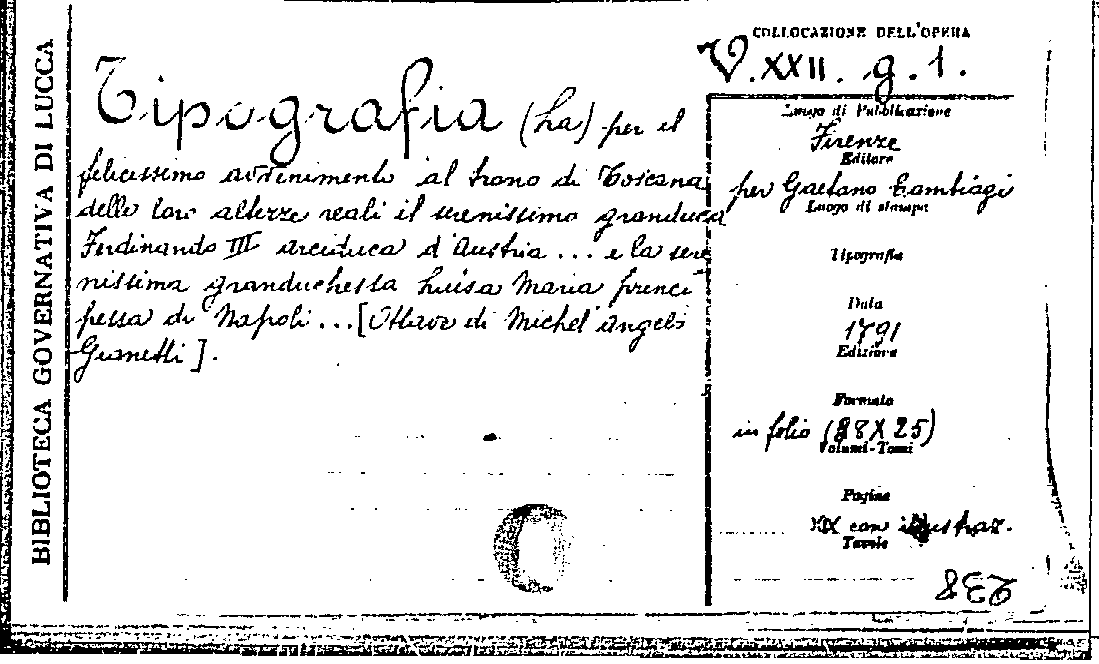 BIBLIOTECA GOVERNATIVA DI LUCCA
Tipografia (La) per il
felicissimo avvenimento al trono di Toscana
delle loro altezze reali il serenissimo granduca
Ferdinando III arciduca d'Austria ... e la sere
nissima granduchessa Luisa Maria princi
pessa di Napoli ... [Ottave di Michel'angelo
Giannetti].
COLLOCAZIONE DELL'OPERA
V. XXII. g. 1.
Luogo di Pubblicazione
Firenze
Editore
per Gaetano Cambiagi
Luogo di stampa
Tipografia
Data
1791
Edizione
Formato
in folio (38 X 25)
Volumi-Tomi
Pagine
XX con illustraz.
Tavole
238